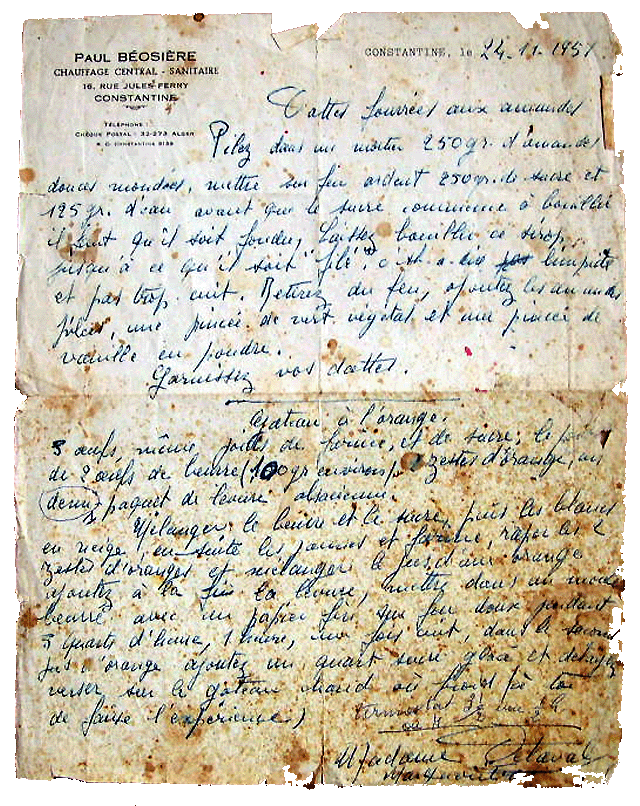 PAUL BÉOSIÈRE
CHAUFFAGE CENTRAL - SANITAIRE
16, RUE JULES FERRY
CONSTANTINE
TÉLÉPHONE :
CHÈQUE POSTAL : 32-273 ALGER
R. C. CONSTANTINE 9139
CONSTANTINE, le 24-11-1951
Dattes fourrées aux amandes
Pilez dans un mortier 250 gr. d'amandes
douces mondées, mettre sur feu ardent 250 gr. de sucre et
125 gr. d'eau avant que le sucre commence à bouillir
il faut qu'il soit fondu, laissez bouillir ce sirop
jusqu'à ce qu'il soit "filé", c'est à dire limpide
et pas trop cuit. Retirez du feu, ajoutez les amandes
pilées, une pincée de vert végétal et une pincée de
vanille en poudre.
Garnissez vos dattes.
Gâteau à l'orange.
3 œufs, même poids de farine, et de sucre, le poids
de 2 œufs de beurre (100 gr environ) 2 zestes d'orange, un
demi paquet de levure alsacienne.
Mélanger le beurre et le sucre, puis les blancs
en neige, en suite les jaunes et farine, raper les 2
zestes d'oranges et mélanger le jus d'une orange
ajoutez à la fin la levure, mettre dans un moule
beurré avec un papier fin sur feu doux pendant
3 quarts d'heure, 1 heure, une fois cuit, dans le second
jus d'orange ajoutez un quart sucre glacé et
verser sur le gâteau chaud ou froid (à toi
de faire l'expérience)
Madame Delaval